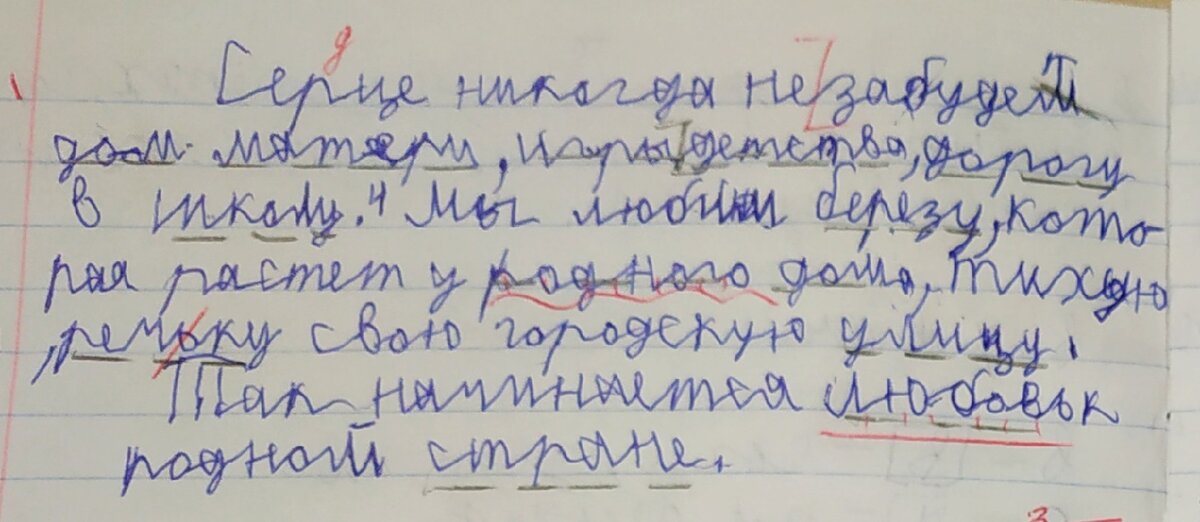 Серце никогда не забудет
дом матери, игры детства, дорогу
в школу. Мы любим березу, кото
рая растет у родного дома, тихую
, речьку свою городскую улицу.
Так начинается любовьк
родной стране.